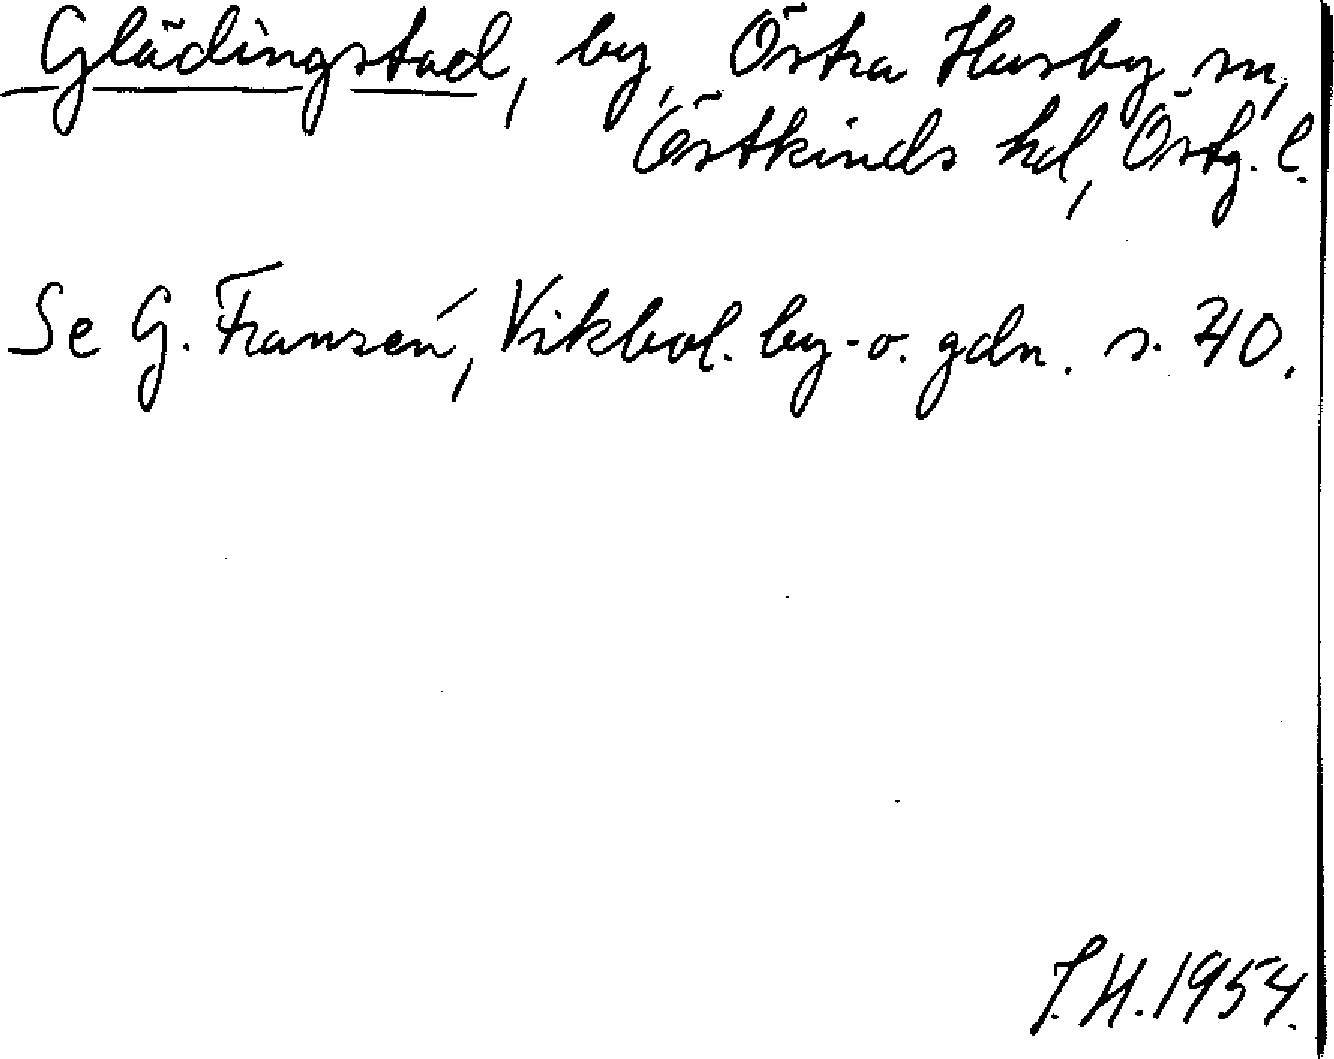 Glädingstad, by, Östra Husby sn,
Östkinds hd, Östg. l.
Se G. Franzén, Vikbol. by- o. gdn. s. 40.
J.H. 1954.